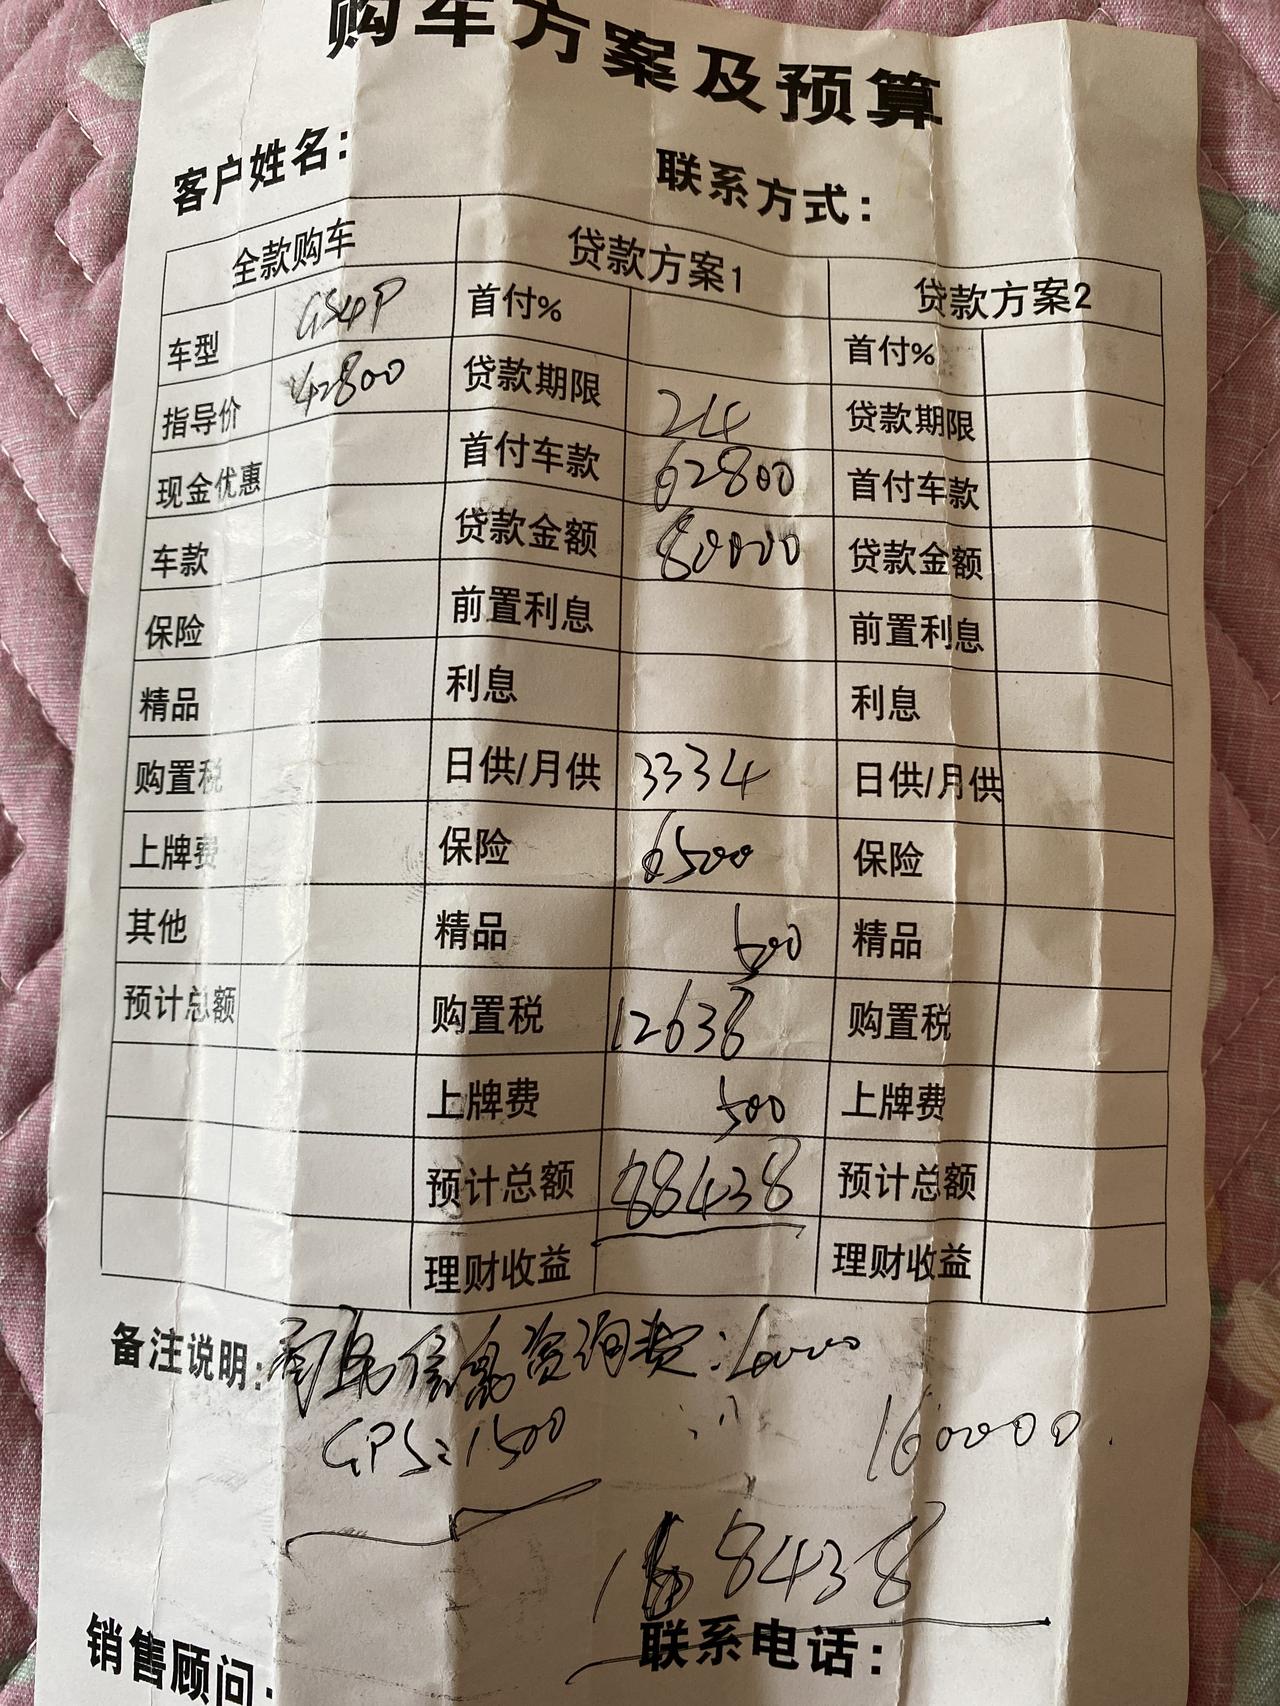 购车方案及预算
客户姓名： 联系方式：
全款购车 贷款方案1 贷款方案2
车型 GS4P 首付% 首付%
指导价 42800 贷款期限 24 贷款期限
现金优惠 首付车款 62800 首付车款
车款 贷款金额 80000 贷款金额
保险 前置利息 前置利息
精品 利息 利息
购置税 日供/月供 3334 日供/月供
上牌费 保险 6500 保险
其他 精品 500 精品
预计总额 购置税 12638 购置税
上牌费 500 上牌费
预计总额 88438 预计总额
理财收益 理财收益
备注说明： 信息资询费：
GPS：1500 160000.
168438
销售顾问： 联系电话：